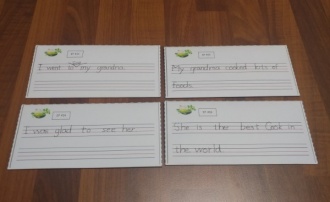 I went to my grandma.
My grandma cooked lots of
foods.
I was glad to see her
She is the best Cook in
the world.